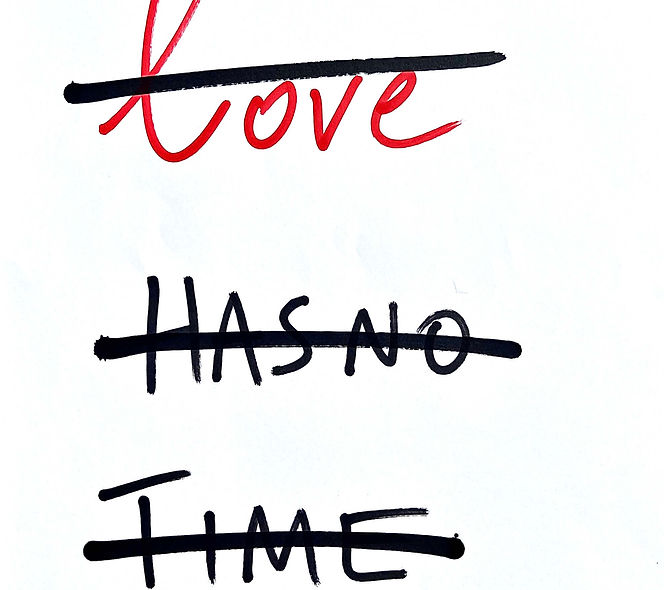 Love
HAS NO
TIME